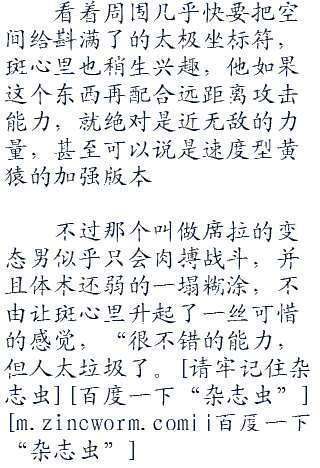 看着周围几乎快要把空
间给斟满了的太极坐标符，
斑心里也稍生兴趣，他如果
这个东西再配合远距离攻击
能力，就绝对是近无敌的力
量，甚至可以说是速度型黄
猿的加强版本
不过那个叫做席拉的变
态男似乎只会肉搏战斗，并
且体术还弱的一塌糊涂，不
由让斑心里升起了一丝可惜
的感觉，“很不错的能力，
但人太垃圾了。[请牢记住杂
志虫][百度一下“杂志虫”]
[m.zincworm.comii百度一下
“杂志虫”]